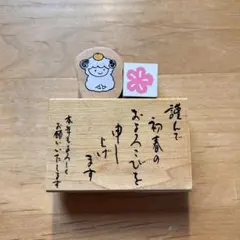 謹んで
初春の
およろこびを
申し上げ
ます
本年もよろしく
お願いいたします